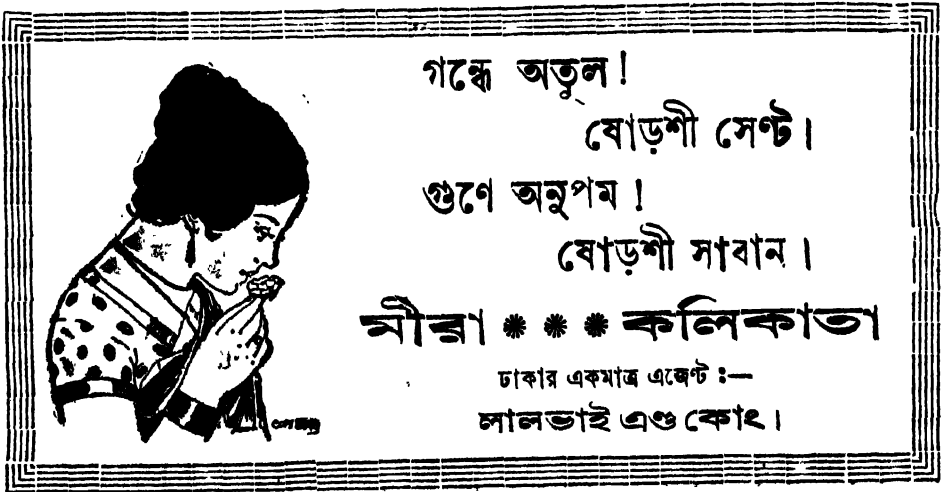 গন্ধে অতুল!
ষোড়শী সেণ্ট।
গুণে অনুপম!
ষোড়শী সাবান।
মীরা * * * কলিকাতা
ঢাকার একমাত্র এজেণ্ট :—
লালভাই এণ্ড কোং।